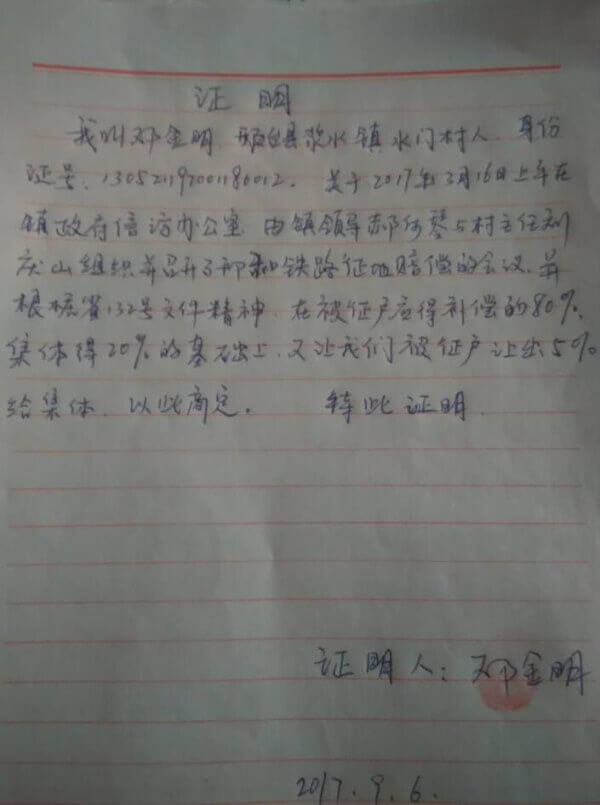 证明
我叫邓金明,邢台县浆水镇水门村人,身份
证号,130521197001180012. 关于2017年3月16日上午在
镇政府信访办公室 由镇领导郝 琴与村主任刘
庆山组织并召开了邢和铁路征地赔偿的会议.并
根据省132号文件精神.在被征户应得补偿的80%,
集体得20%的基础上.又让我们被征户让出5%
给集体.以此商定. 特此证明.
证明人:邓金明
2017.9.6.